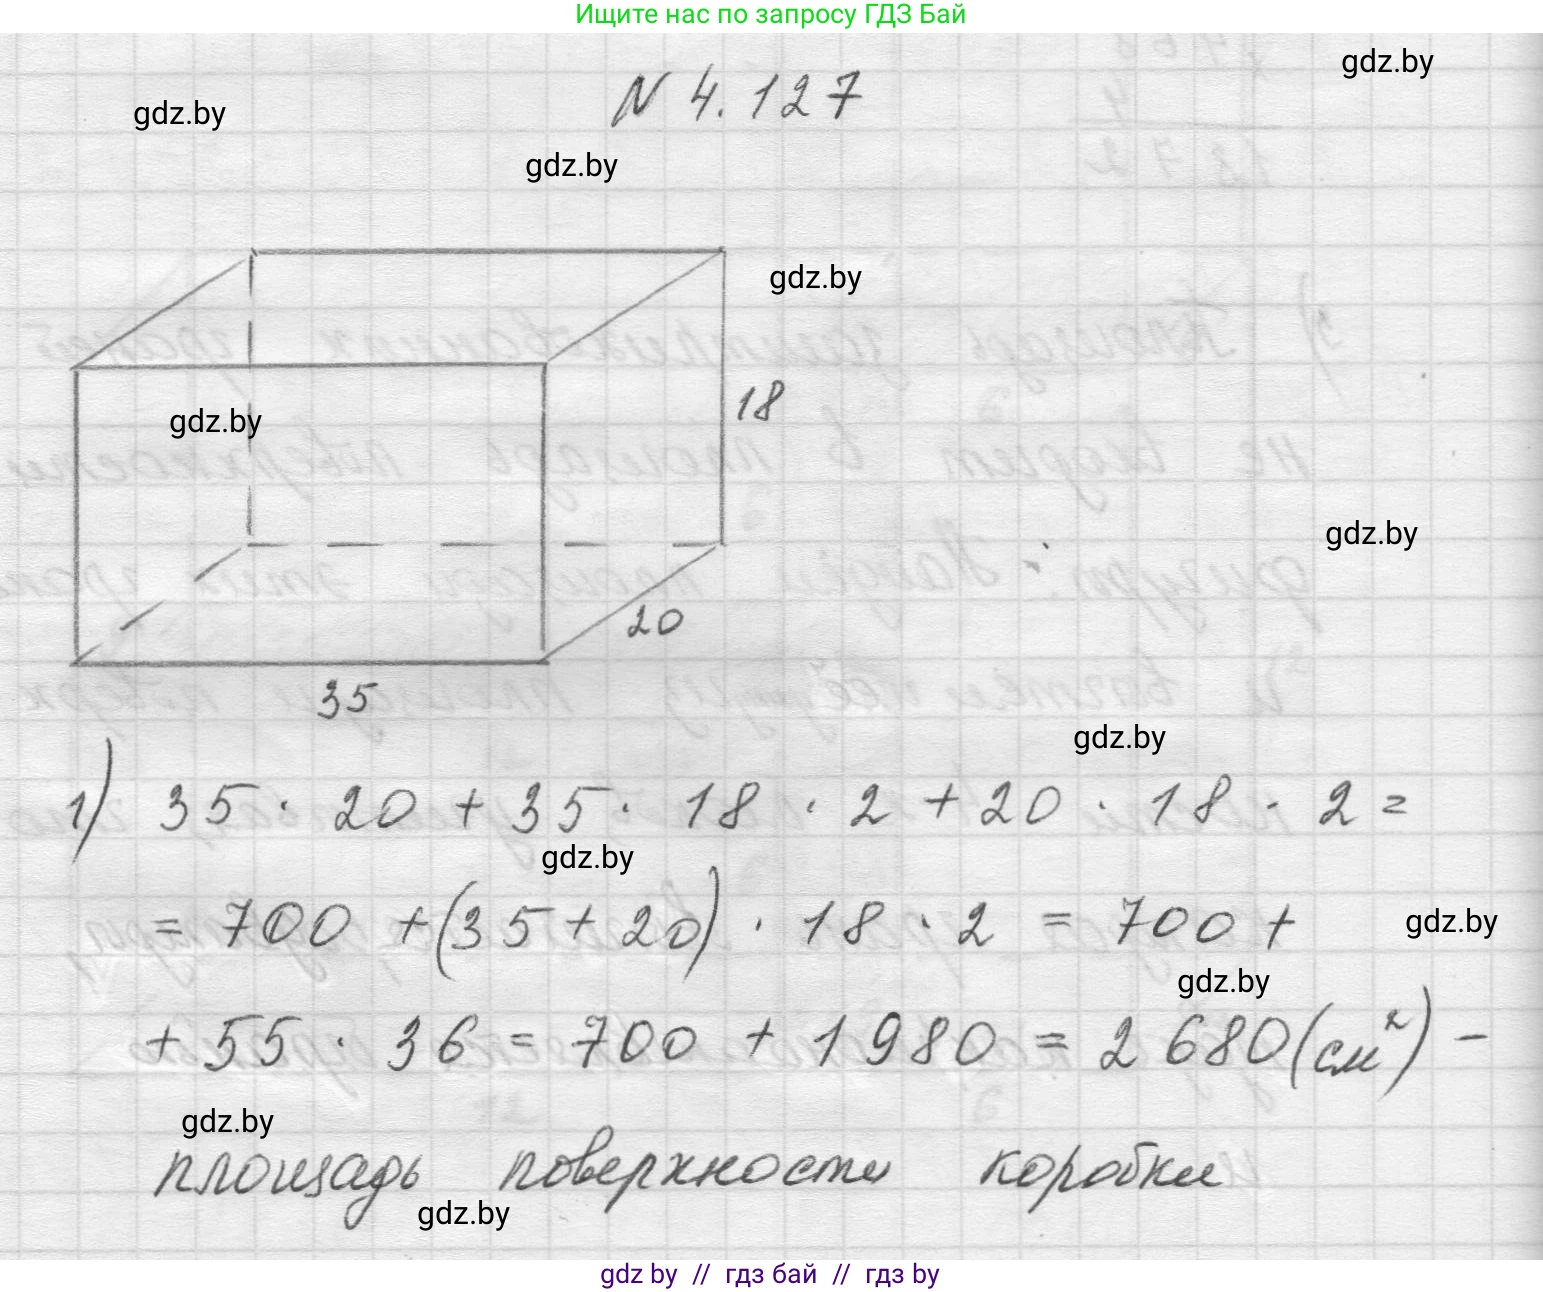 Ищите нас по запросу ГДЗ Бай
gdz.by
N 4.127
gdz.by
gdz.by
gdz.by
gdz.by
18
gdz.by
20
35
gdz.by
1) 35 · 20 + 35 · 18 · 2 + 20 · 18 · 2 =
gdz.by
= 700 + (35 + 20) · 18 · 2 = 700 +
gdz.by
gdz.by
+ 55 · 36 = 700 + 1980 = 2680 (см²) -
gdz.by
площадь поверхности коробки
gdz.by
gdz by // гдз бай // гдз by